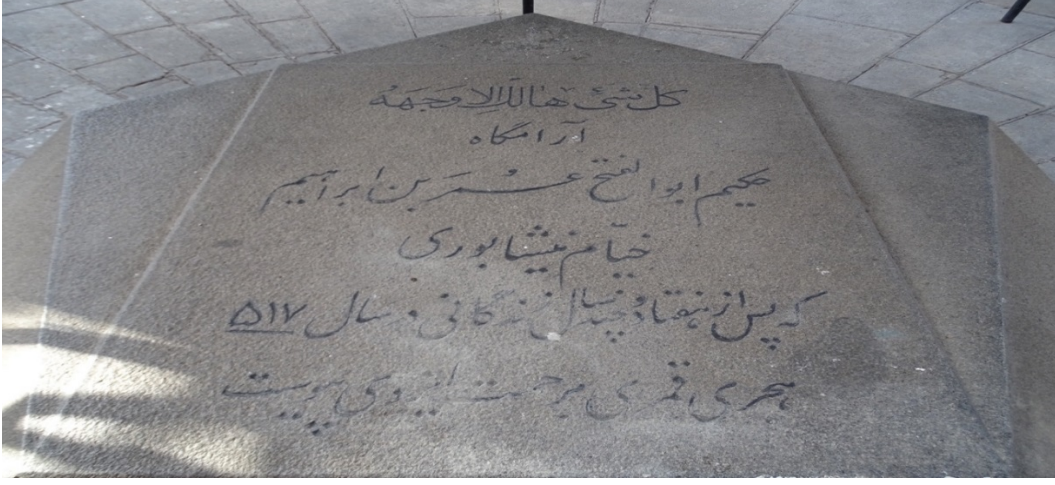 کل شئ هالك الا وجهه
آرامگاه
حکیم ابوالفتح عُمَر بن ابراهیم
خیّام نیشابوری
که پس از هفتاد و چند سال زندگانی در سال ۵۱۷
هجری قمری برحمت ایزدی پیوست